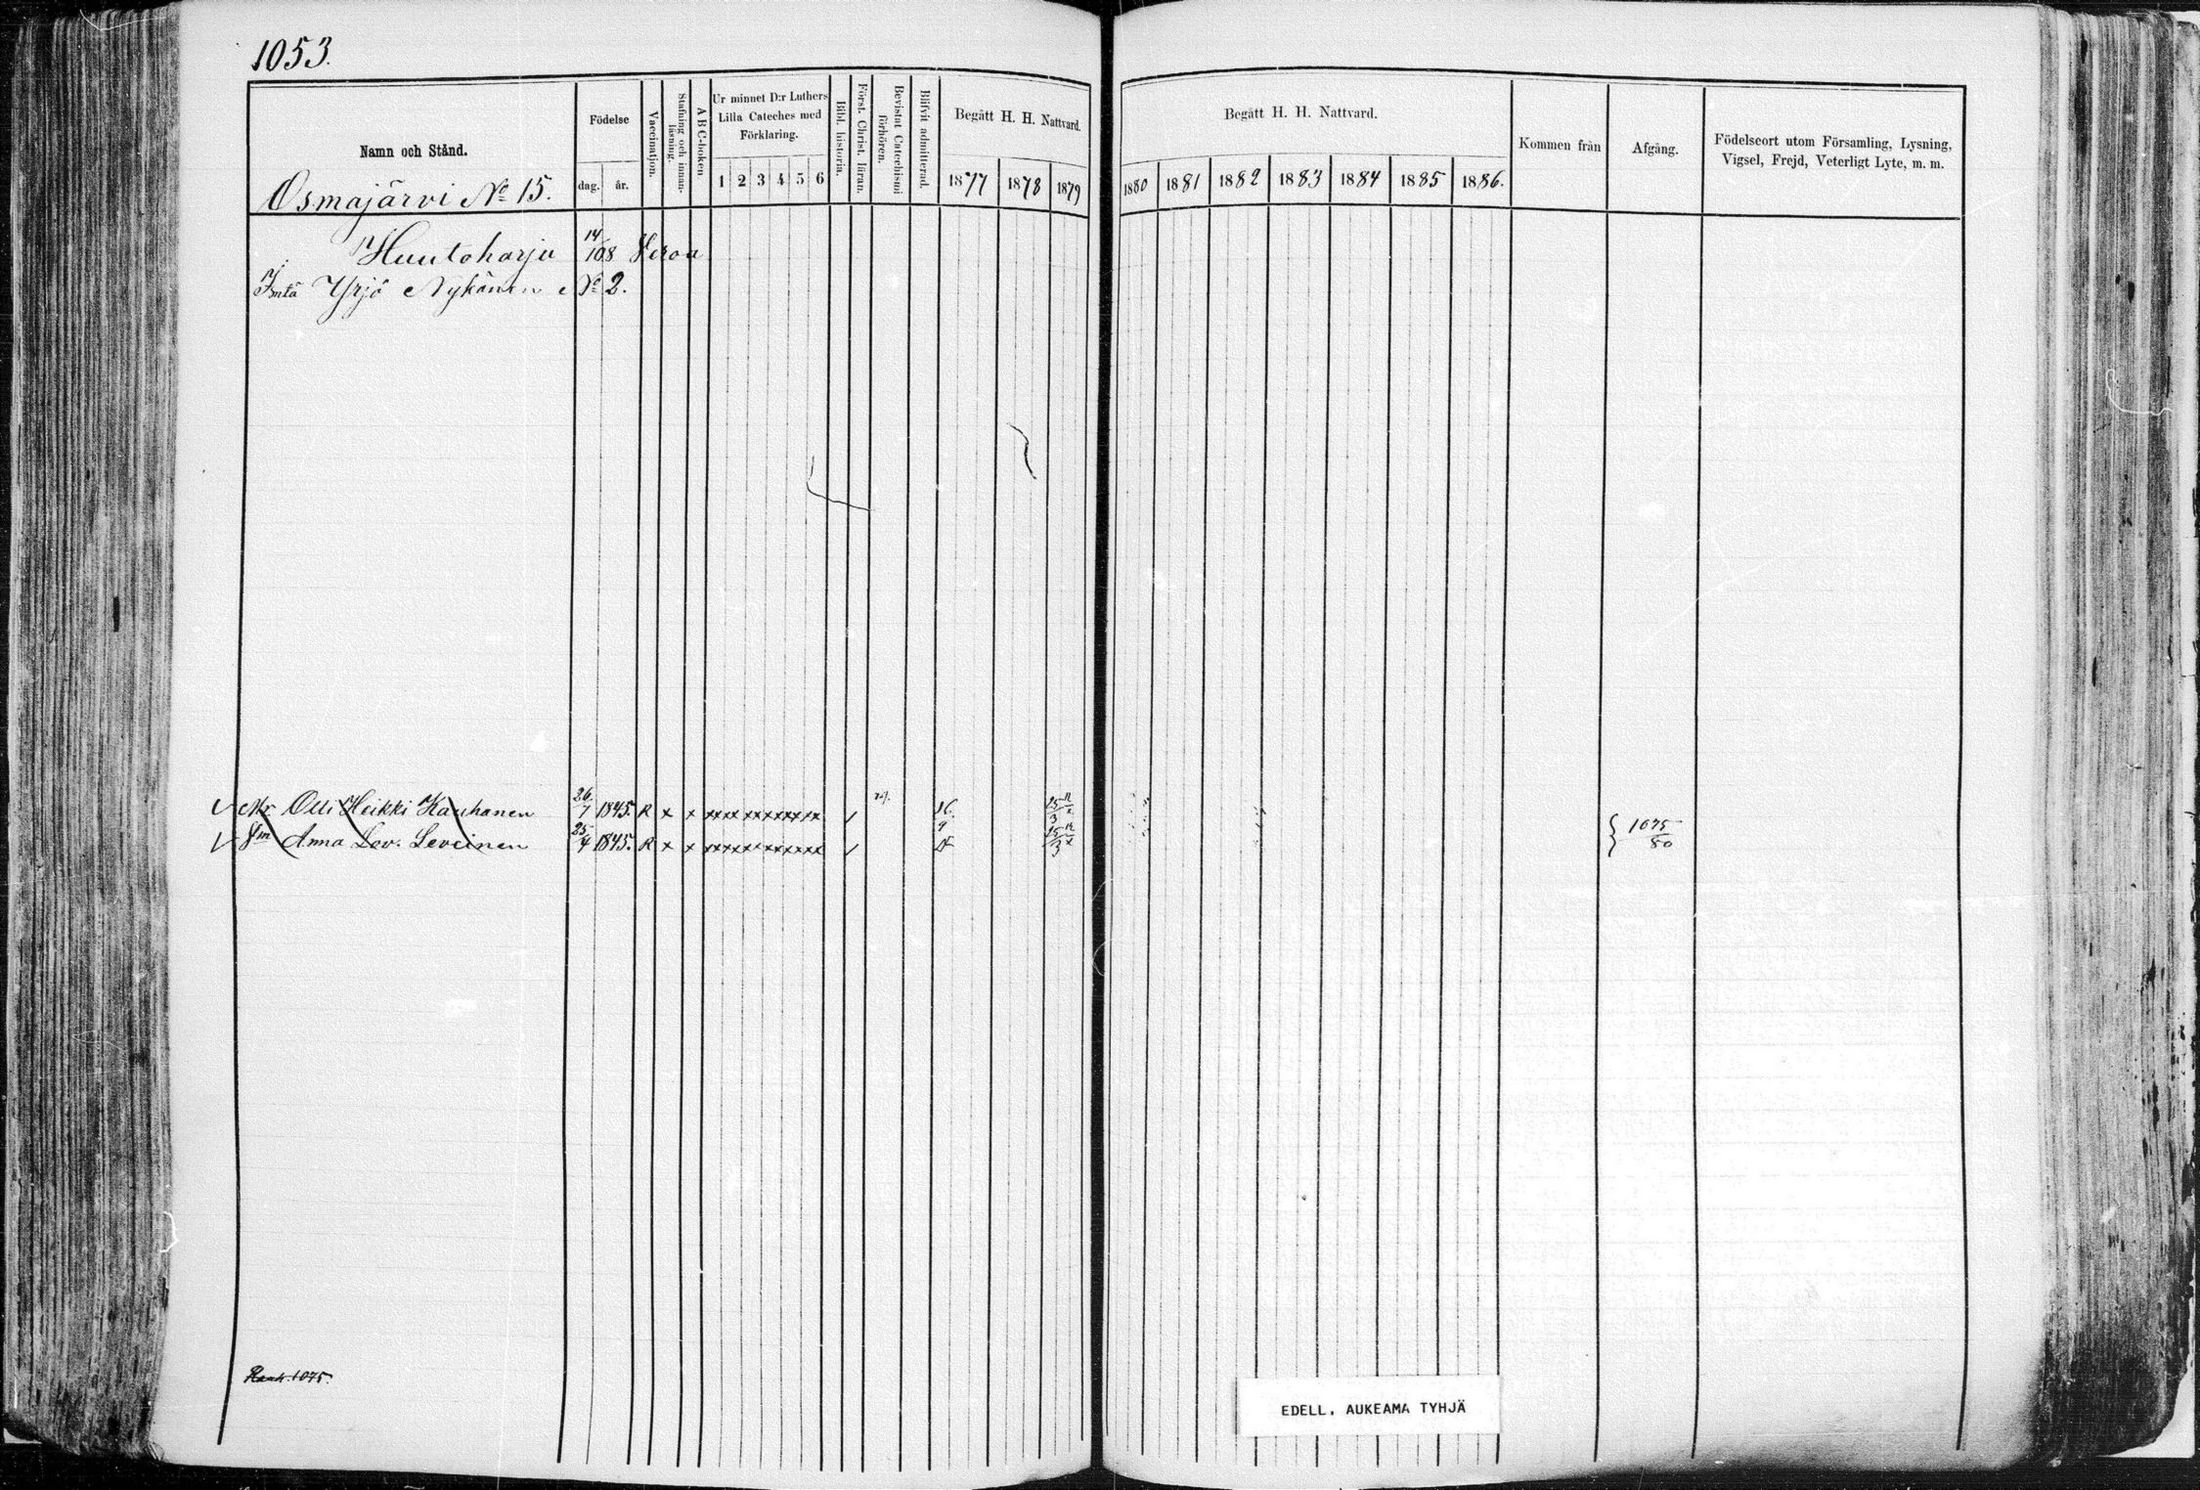 1053.
Namn och Stånd.
Födelse
dag. år.
Vaccination.
Stafning och innan-läsning.
A B C-boken
Ur minnet D:r Luthers
Lilla Cateches med
Förklaring.
1 2 3 4 5 6
Bibl. historia.
Först. Christ. läran.
Bevistat Catechismi förhören.
Blifvit admitterad.
Begått H. H. Nattvard.
1877 1878 1879
Begått H. H. Nattvard.
1880 1881 1882 1883 1884 1885 1886.
Kommen från
Afgång.
Födelseort utom Församling, Lysning,
Vigsel, Frejd, Veterligt Lyte, m. m.
Osmajärvi No 15.
Huutoharju 14/108 Veroa
Ismtä Yrjö Nykänen No 2.
Olli Heikki Kauhanen 26/7 1845. R x x xxxx xxxxxxxx / 16. 25/3
Anna Lov. Leveinen 25/4 1845. R x x xxxxx xxxxxx / 9 25/3 1075/80
1075.
EDELL. AUKEAMA TYHJÄ